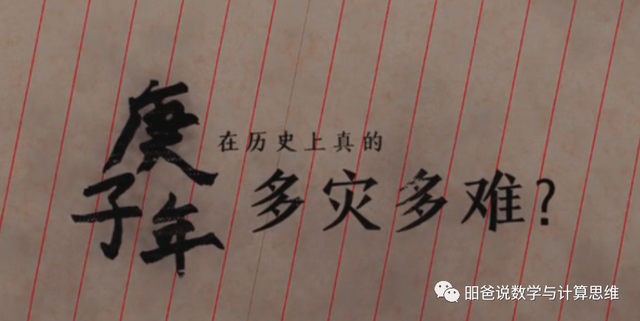 庚子年
在历史上真的
多灾多难?
昍爸说数学与计算思维